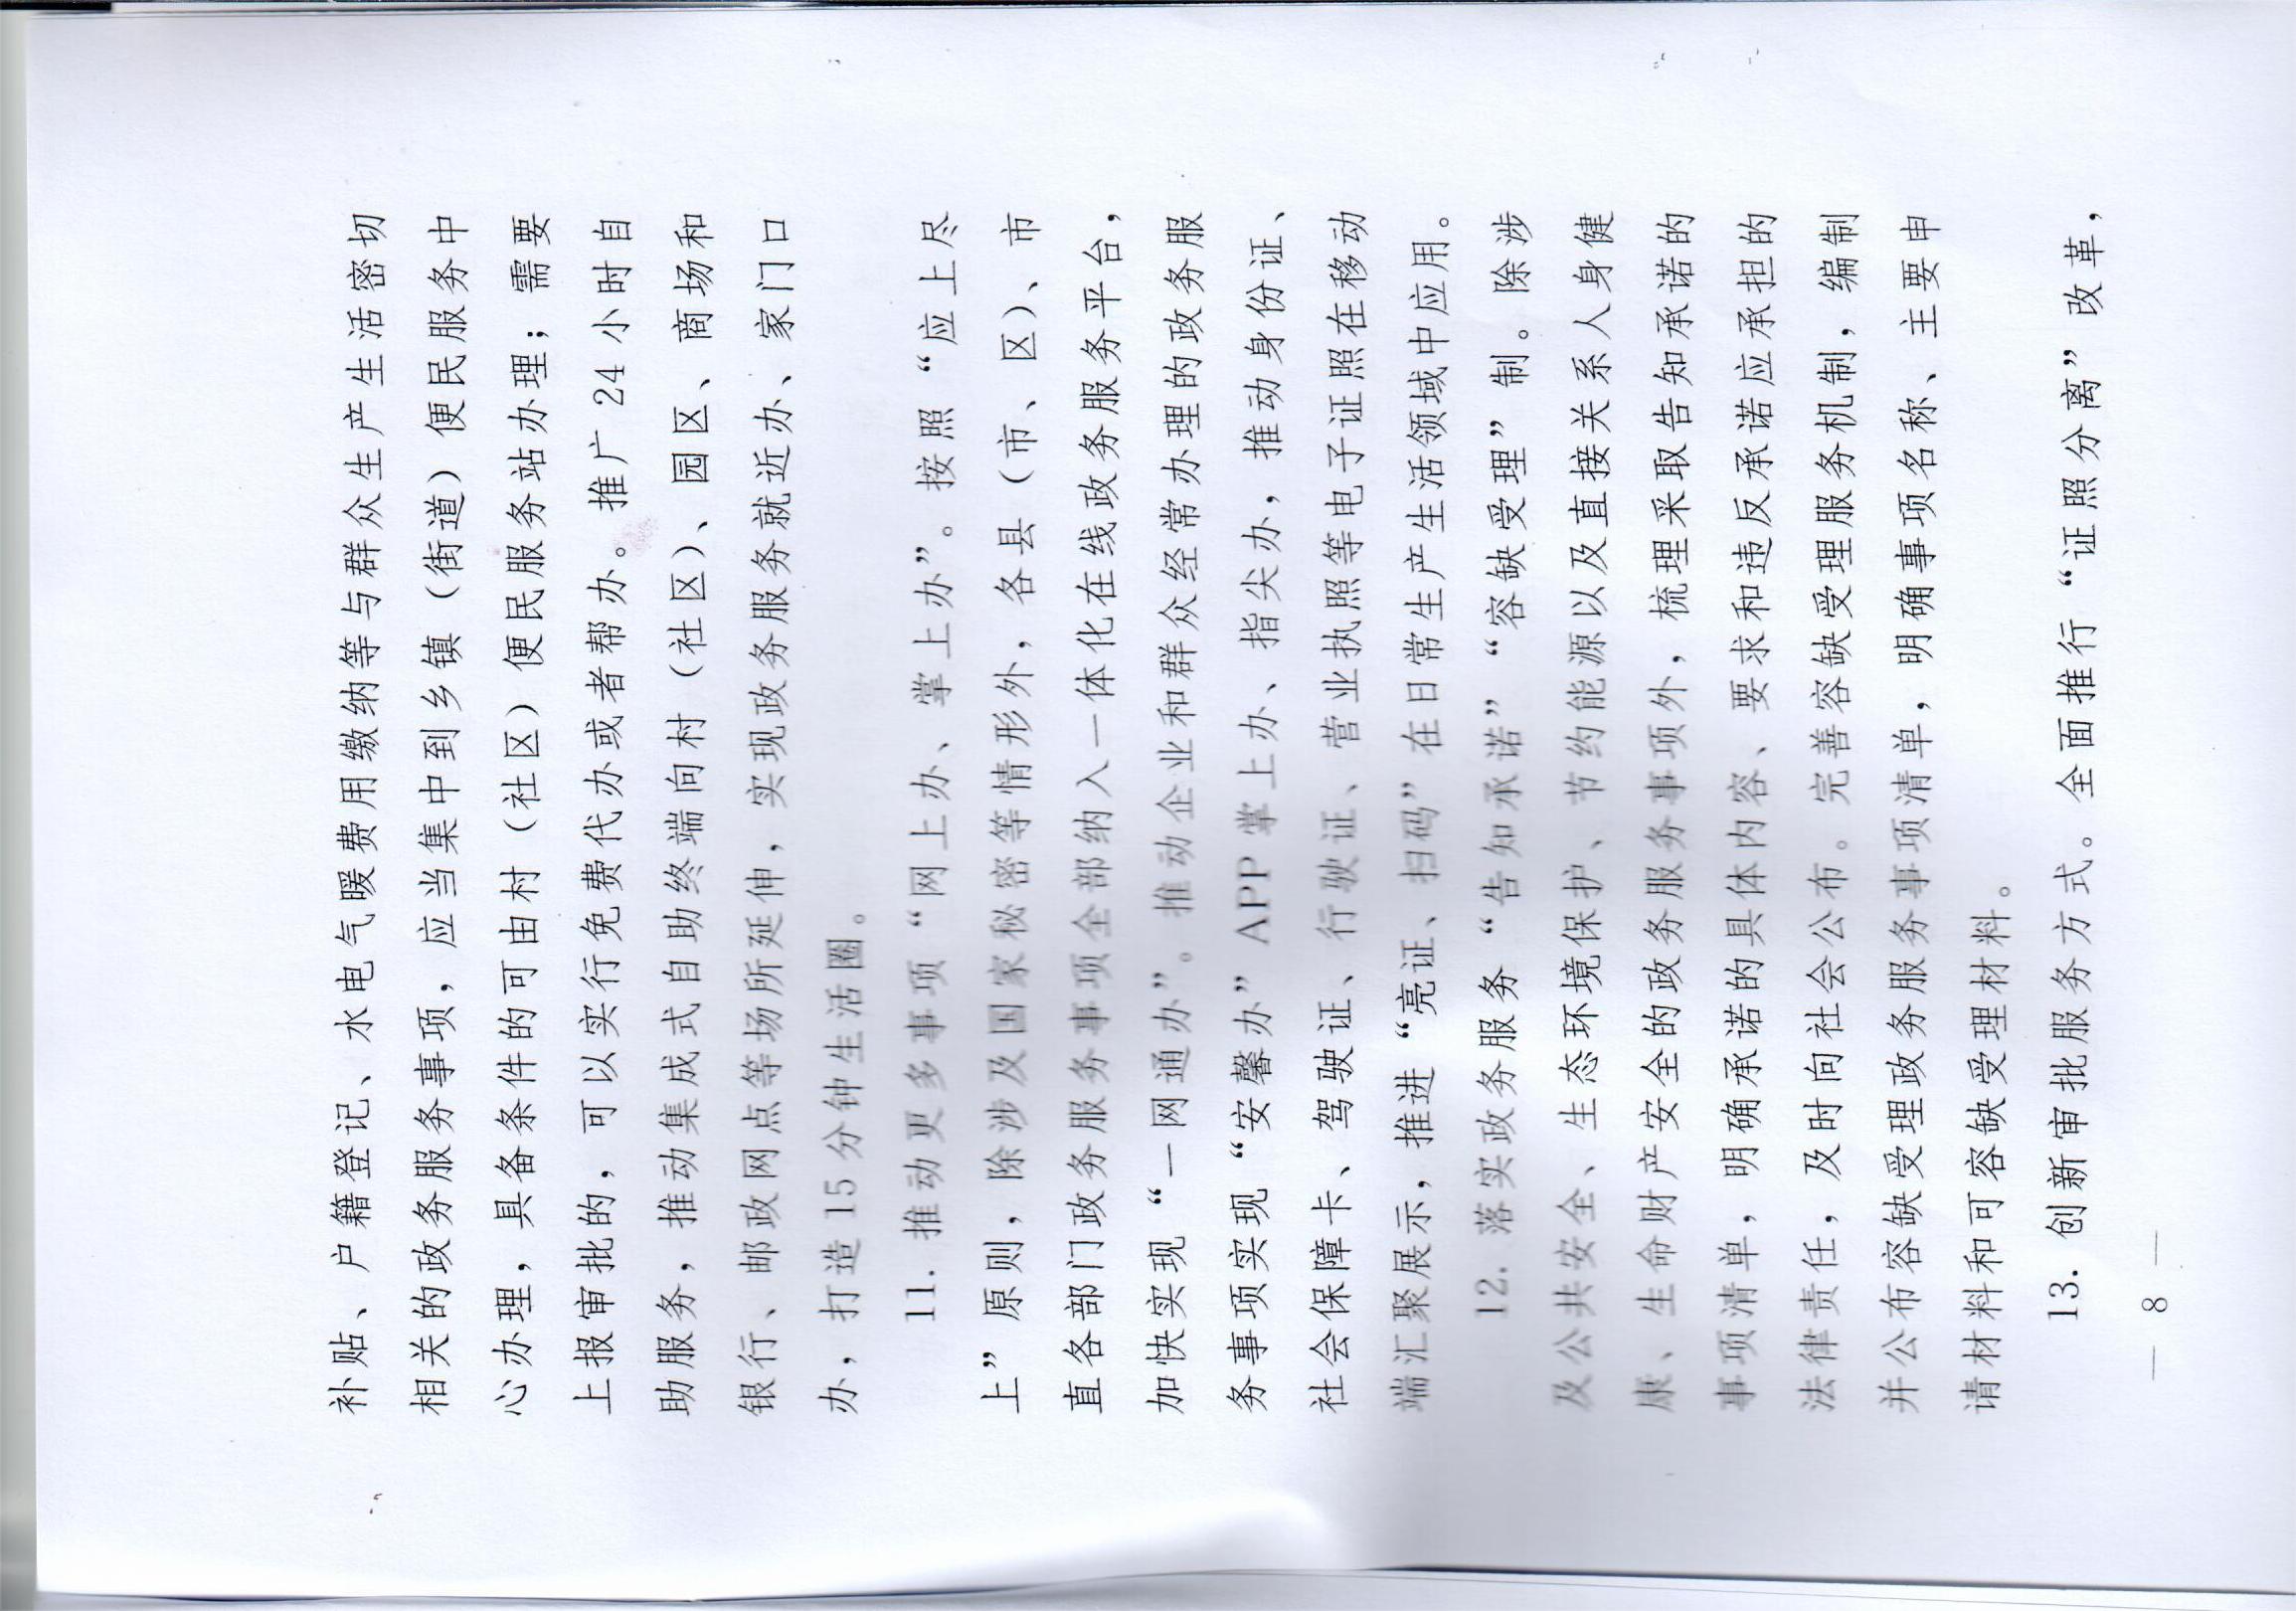 补贴、户籍登记、水电气暖费用缴纳等与群众生产生活密切
相关的政务服务事项，应当集中到乡镇（街道）便民服务中
心办理，具备条件的可由村（社区）便民服务站办理；需要
上报审批的，可以实行免费代办或者帮办。推广 24 小时自
助服务，推动集成式自助终端向村（社区）、园区、商场和
银行、邮政网点等场所延伸，实现政务服务就近办、家门口
办，打造 15 分钟生活圈。
11. 推动更多事项“网上办、掌上办”。按照“应上尽
上”原则，除涉及国家秘密等情形外，各县（市、区）、市
直各部门政务服务事项全部纳入一体化在线政务服务平台，
加快实现“一网通办”。推动企业和群众经常办理的政务服
务事项实现“安馨办”APP 掌上办、指尖办，推动身份证、
社会保障卡、驾驶证、行驶证、营业执照等电子证照在移动
端汇聚展示，推进“亮证、扫码”在日常生产生活领域中应用。
12. 落实政务服务“告知承诺”“容缺受理”制。除涉
及公共安全、生态环境保护、节约能源以及直接关系人身健
康、生命财产安全的政务服务事项外，梳理采取告知承诺的
事项清单，明确承诺的具体内容、要求和违反承诺应承担的
法律责任，及时向社会公布。完善容缺受理服务机制，编制
并公布容缺受理政务服务事项清单，明确事项名称、主要申
请材料和可容缺受理材料。
13. 创新审批服务方式。全面推行“证照分离”改革，
— 8 —